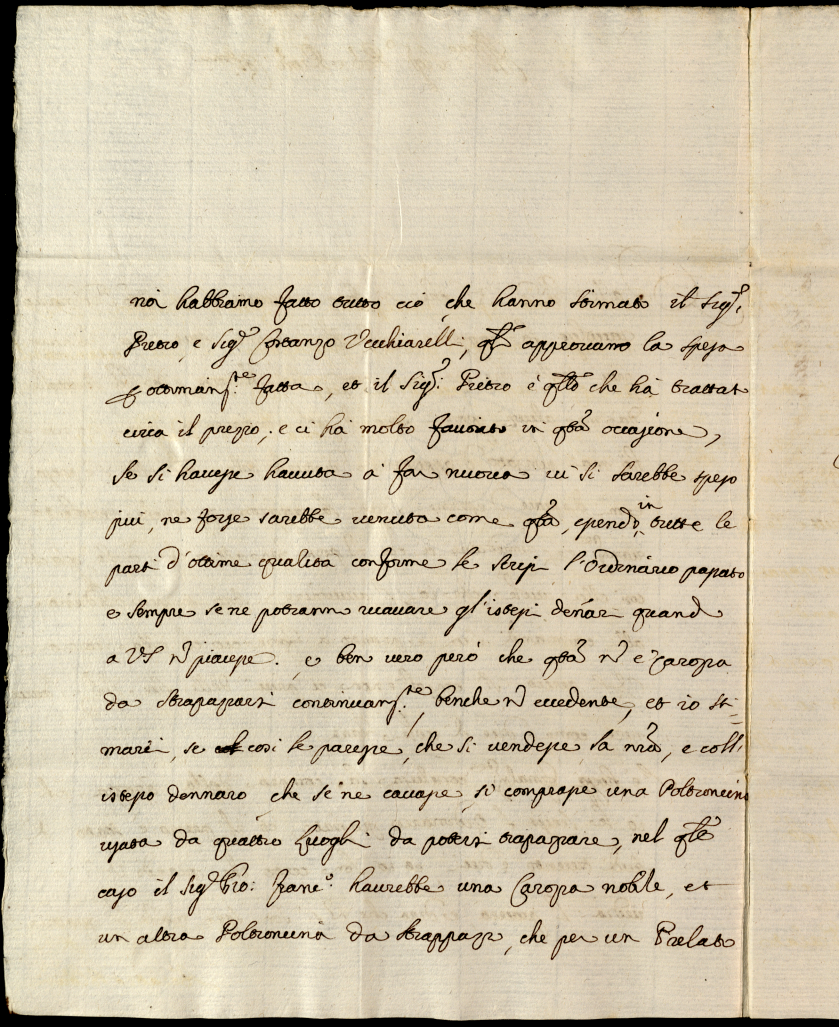 noi habbiamo fatto tutto ciò che hanno stimato il Sig.r
Pietro, e Sig.r Costanzo Vecchiarelli, q.li appruovano la spesa
p ottimam.te fatta, et il Sig.r Pietro è q.llo che ha trattat
circa il prezzo, e ci ha molto favorito in q.sta occasione,
se si havesse havuta à far nuova vi si sarebbe speso
più, ne forse sarebbe venuta come q.sta, essendo in tutte le
parti d'ottime qualità conforme le scrissi l'Ordinario passato
e sempre se ne potranno ricavare gl'istessi denari quando
a VS nõ piacesse. e ben vero però che q.sta nõ e Carozza
da strapazzarsi continuam.te, benche nõ eccedente, et io sti=
marei, se così le paresse, che si vendesse la nr̃a, e coll'
istesso dennaro che se ne cavasse, si comprasse una Poltroncina
usata da quattro luoghi da potersi strapazzare, nel q.le
caso il Sig.r Gio: Fran.co haurebbe una Carozza nobile, et
un altra Poltroncina da strappazzi, che per un Prelato